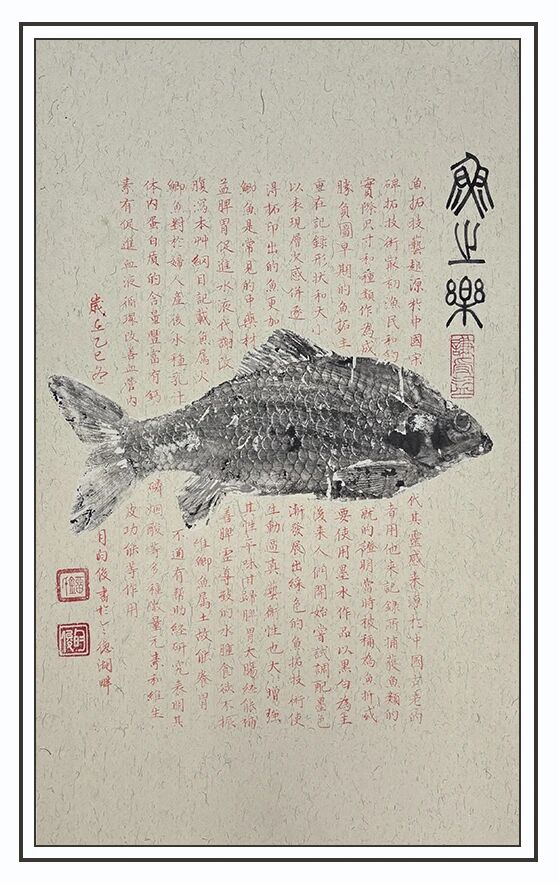 魚之樂
魚拓技藝起源於中國宋代其靈感来源於中國古老的
碑拓技術最初漁民和釣者用他来記錄所捕獲魚類的
實際尺寸和種類作為成就的證明當時被稱為魚折或
勝負圖早期的魚拓主要使用墨水作品以黑白為主
重在記錄形狀和大小後来人們開始嘗試調配墨色
以表現層次感併逐漸發展出綵色的魚拓技術使
得拓印出的魚更加生動逼真藝術性也大大增強
鯽魚是常見的中藥材其性平味甘歸脾胃大腸經能補
益脾胃促進水液代謝改善脾虛導致的水腫食欲不振
腹瀉本艸綱目記載魚屬火唯鯽魚屬土故能養胃
鯽魚對於婦人產後水腫乳汁不通有幫助經研究表明其
体内蛋白質的含量豐富有鈣磷烟酸等多種微量元素和維生
素有促進血液循環改善血管内皮功能等作用
歲在乙巳冬月向俊書於湖畔